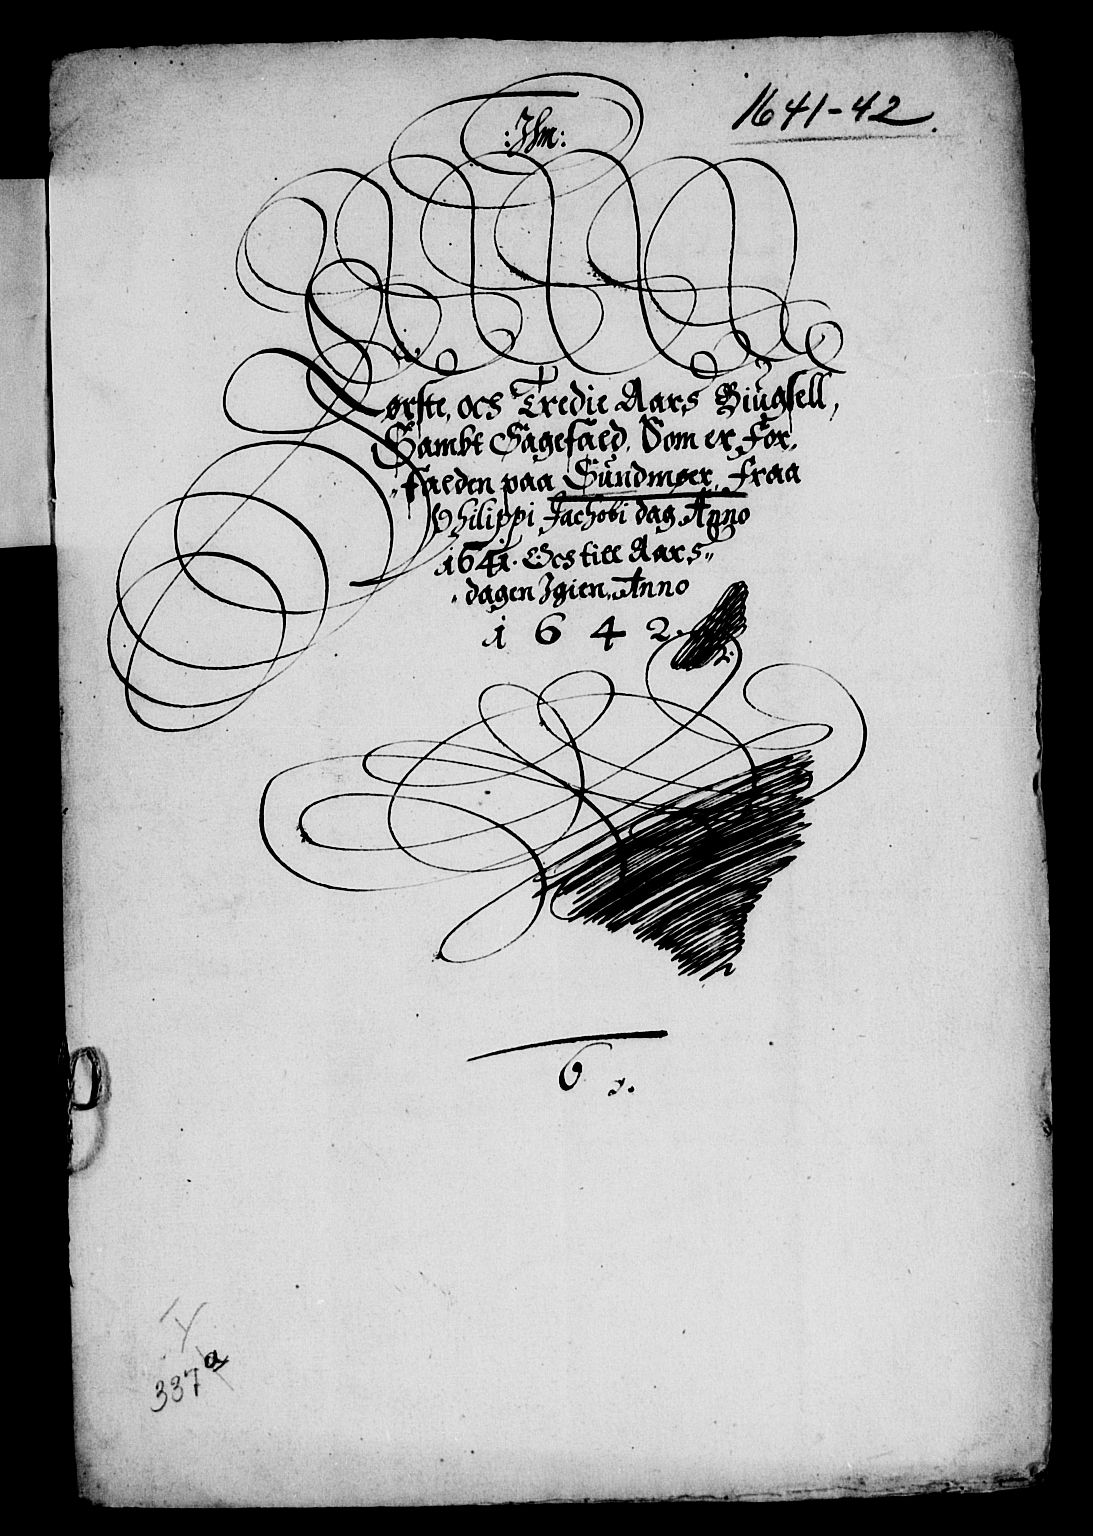 1641-42.
:Jhm:
Første, och Tredie Aars Biügsell,
Sambt Sagefald, Som er For,
falden paa Sündmøer, fraa
Philippi Jachobi dag Anno
1641. Och till Aars
dagen Igien, Anno
1642.
6
337a